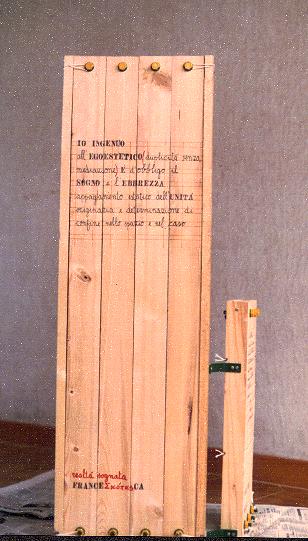 IO INGENUO
all'EGOESTETICO (duplicità senza
mediazione) È d'obbligo il
SOGNO e l'EBBREZZA
appagamento estatico dell'UNITÀ
originaria e determinazione di
confine nello spazio e nel caso
realtà sognata
FRANCEΣκότεςCA